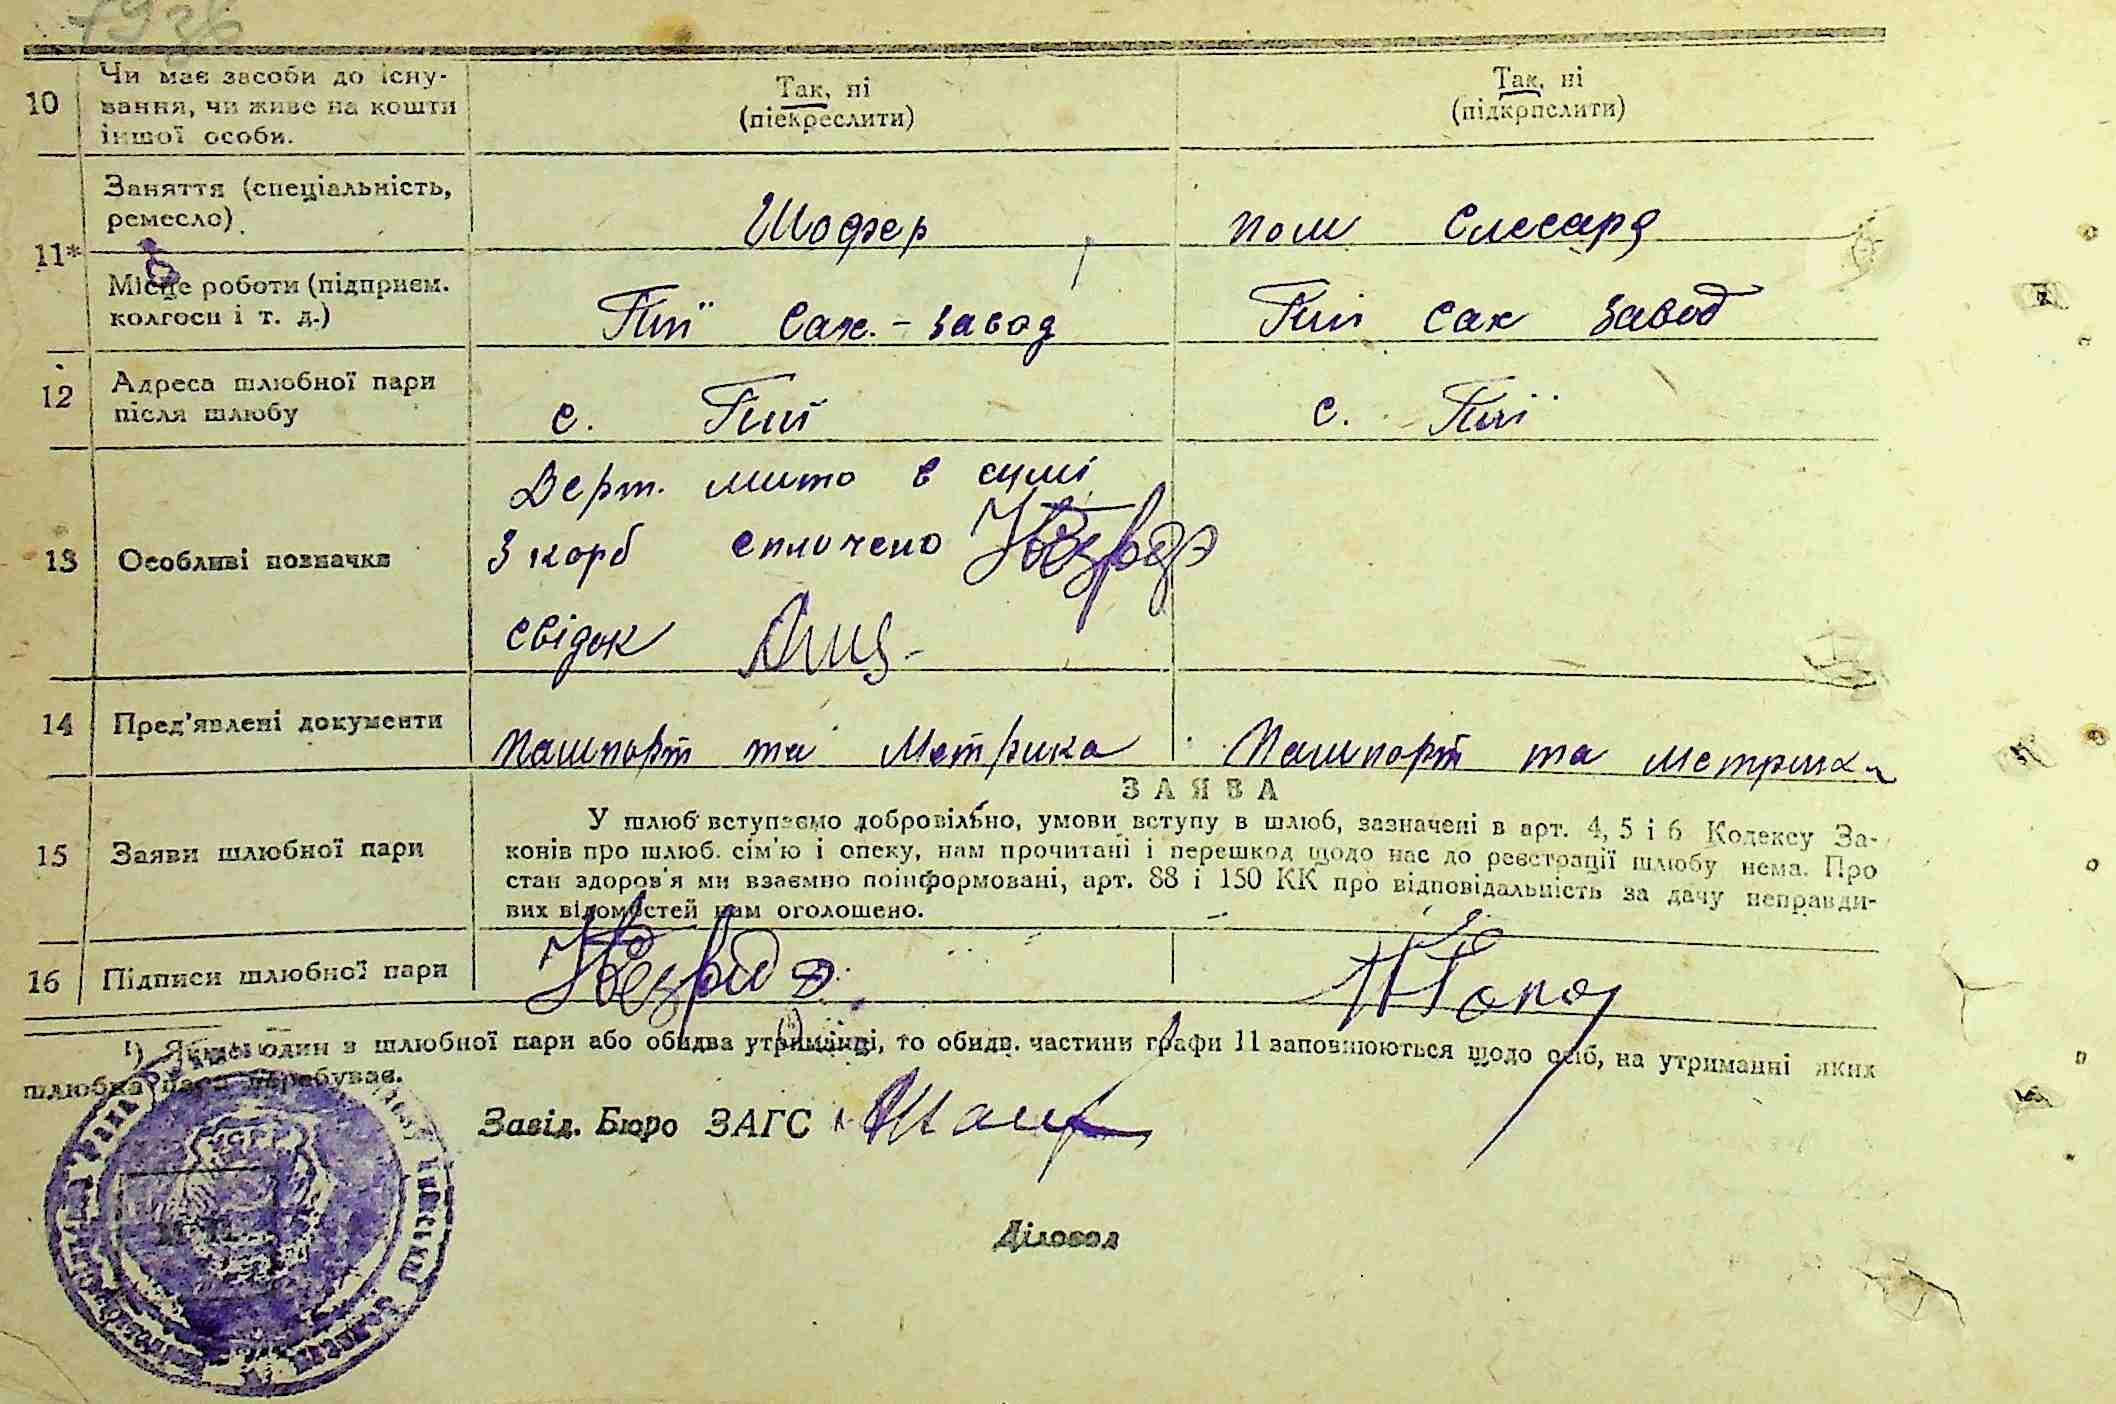 1936
10 Чи має засоби до існу-
вання, чи живе на кошти
іншої особи.
Так, ні
(піекреслити)
Так, ні
(підкрпслити)
11* Заняття (спеціальність,
ремесло).
Шофер
пом Слесаря
Місце роботи (підприєм.
колгосп і т. д.)
Пії Сах.-завод
Пії сах завод
12 Адреса шлюбної пари
після шлюбу
с. Пії
с. Пії
13 Особливі позначки
Держ. мито в сумі
3 карб сплочено
свідок
14 Пред'явлені документи
пашпорт та Метрика
Пашпорт та метрика
ЗАЯВА
15 Заяви шлюбної пари
У шлюб вступаємо добровільно, умови вступу в шлюб, зазначені в арт. 4, 5 і 6 Кодексу За-
конів про шлюб. сім'ю і опеку, нам прочитані і перешкод щодо нас до реєстрації шлюбу нема. Про
стан здоров'я ми взаємно поінформовані, арт. 88 і 150 КК про відповідальність за дачу неправди-
вих відомостей нам оголошено.
16 Підписи шлюбної пари
¹) Якщо один з шлюбної пари або обидва утриманці, то обидв. частини графи 11 заповнюються щодо осіб, на утриманні яких
шлюбна пара перебуває.
Завід. Бюро ЗАГС
Діловод